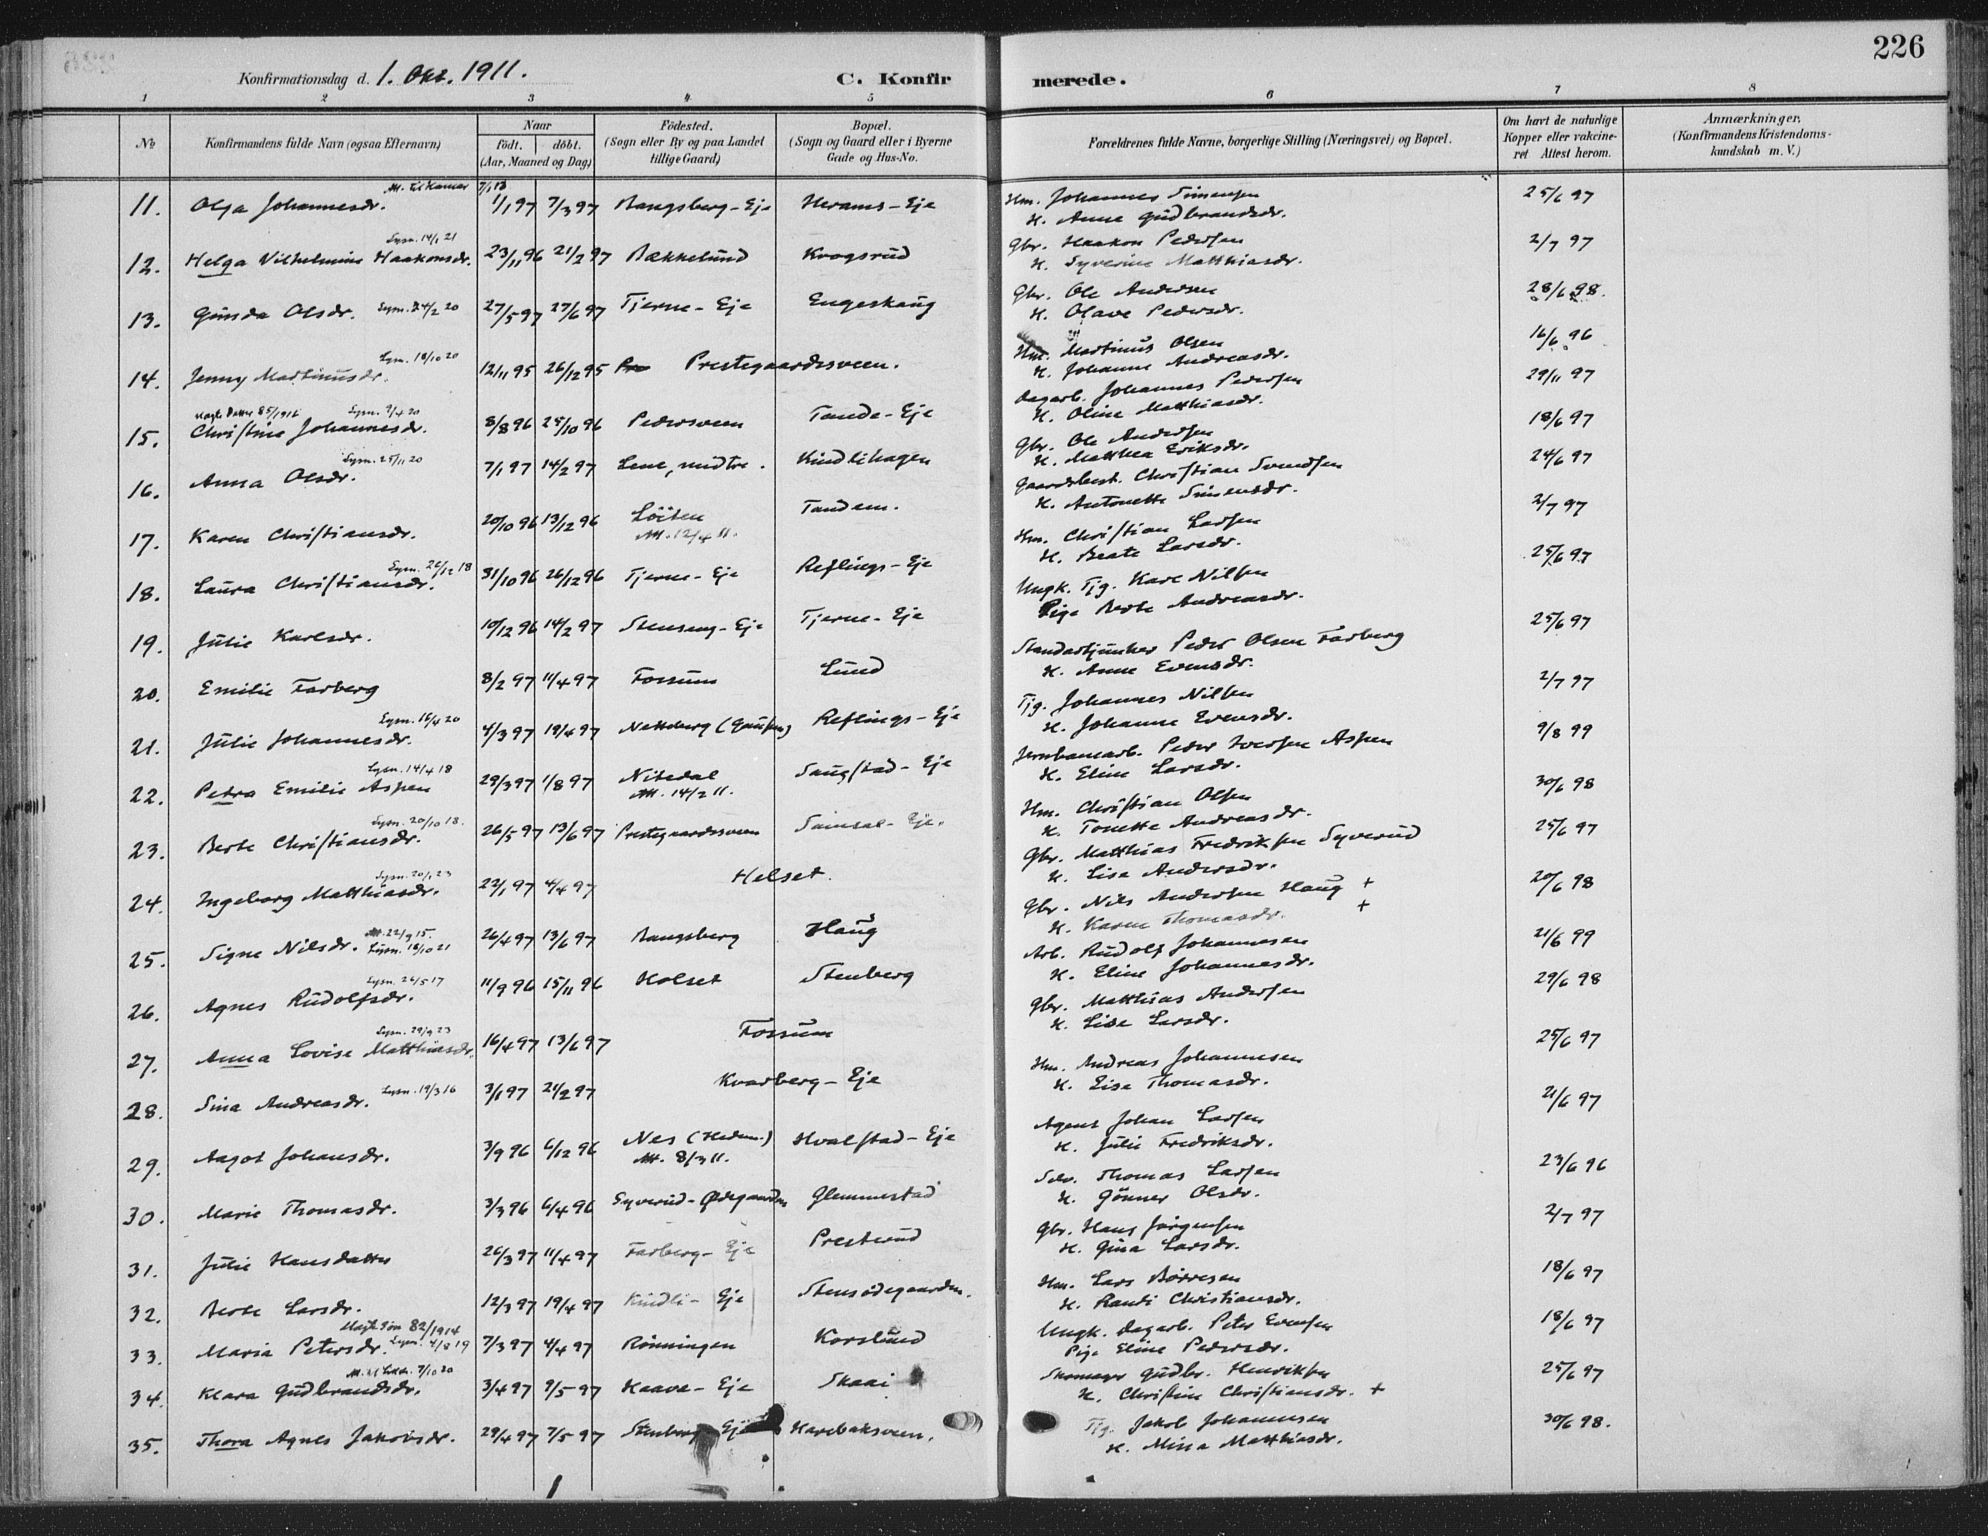 226
Konfirmationsdag d. 1. Okt. 1911.
C. Konfirmerede.
1 2 3 4 5 6 7 8
No
Konfirmandens fulde Navn (ogsaa Efternavn)
Naar
født. døbt.
(Aar, Maaned og Dag)
Fødested.
(Sogn eller By og paa Landet
tillige Gaard)
Bopæl.
(Sogn og Gaard eller i Byerne
Gade og Hus-No.
Forældrenes fulde Navne, borgerlige Stilling (Næringsvei) og Bopæl.
Om havt de naturlige
Kopper eller vakcine-
ret Attest herom.
Anmærkninger.
(Konfirmandens Kristendoms-
kundskab m. V.)
11. Olga Johannesdr. 1/1 97 7/3 97 Bangsberg - Eje Herams - Eje Hm. Johannes Simensen 25/6 97
H. Anna Gudbrandsdr.
Lysn. 14/1 21
12. Helga Vilhelmine Haakonsdr. 23/11 96 21/2 97 Bækkelund Krogsrud Gbr. Haakon Pedersen 2/7 97
H. Syverine Matthiasdr.
13. Gunda Olsdr. Lysn. 24/2 20 27/5 97 27/6 97 Tjerne - Eje Engeskaug Gbr. Ole Andersen 28/6 98.
H. Olave Pedersdr.
Lysn. 18/10 20
14. Jenny Martinusdr. 12/11 95 26/12 95 Prestegaardssveen. Hm. Martinus Olsen 16/6 96
H. Johanne Andreasdr.
Lysn. 9/4 20
15. Christine Johannesdr. 8/8 96 25/10 96 Pedersveen Tande - Eje Dagarb. Johannes Pedersen 29/11 97
H. Oline Matthiasdr.
Lysn. 25/11 20
16. Anna Olsdr. 7/1 97 14/2 97 Lene, midtre. Kindlihagen Gbr. Ole Andersen 18/6 97
H. Matthea Eriksdr.
17. Karen Christiansdr. 20/10 96 13/12 96 Löiten Tandem. Gaardsbest. Christian Svendsen 24/6 97
Att. 12/4 11. H. Antonette Simensdr.
Lysn. 26/12 18
18. Laura Christiansdr. 31/10 96 26/12 96 Tjerne - Eje Reflings - Eje Hm. Christian Larsen 2/7 97
H. Beate Larsdr.
19. Julie Karlsdr. 10/12 96 14/2 97 Stenseng - Eje Tjerne - Eje Ungk. Tjg. Karl Nilsen 25/6 97
Pige Berte Andreasdr.
20. Emilie Farberg 8/2 97 11/4 97 Fossum Lund Standartjunker Peder Olsen Farberg 25/6 97
H. Anne Evensdr.
Lysn. 16/4 20
21. Julie Johannesdr. 4/3 97 19/4 97 Reflings - Eje Tjg. Johannes Nilsen 2/7 97
H. Johanne Evensdr.
Lysn. 14/4 18
22. Petra Emilie Aspen 29/3 97 1/8 97 Nitedal Saugstad - Eje Jernbanearb. Peder Iversen Aspen 9/8 99
Att. 14/2 11. H. Eline Larsdr.
Lysn. 20/10 18.
23. Berte Christiansdr. 26/5 97 13/6 97 Prestegaardssveen Sainsal - Eje. Hm. Christian Olsen 30/6 98
H. Tonette Andreasdr.
Lysn. 20/1 23
24. Ingeborg Matthiasdr. 22/1 97 4/4 97 Helset. Gbr. Matthias Fredriksen Syverud 25/6 97
H. Lisa Andersdr.
Att. 22/9 15.
25. Signe Nilsdr. Lysn. 18/10 21 26/4 97 13/6 97 Bangsberg Haug Gbr. Nils Andersen Haug + 20/6 98
H. Karen Thomasdr. +
Lysn. 26/5 17
26. Agnes Rudolfsdr. 11/9 96 15/11 96 Holset Stenberg Arb. Rudolf Johannesen 21/6 99
H. Eline Johannesdr.
Lysn. 29/9 23
27. Anna Lovise Matthiasdr. 16/4 97 13/6 97 Fossum Gbr. Matthias Andersen 29/6 98
H. Lise Larsdr.
28. Sina Andreasdr. Lysn. 19/3 16 3/1 97 21/2 97 Kvarberg - Eje Hm. Andreas Johannesen 25/6 97
H. Lisa Thomasdr.
29. Aagot Johansdr. 3/9 96 6/12 96 Nes (Hedem.) Hvalstad - Eje Agent Johan Larsen 21/6 97
Att. 8/3 11. H. Julie Fredriksdr.
30. Marie Thomasdr. 3/3 96 6/4 96 Syverud - Ødegaarden Glemmestad Selv. Thomas Larsen 23/6 96
H. Gönner Olsdr.
31. Julie Hansdatter 26/3 97 11/4 97 Farberg - Eje Presterud Gbr. Hans Jørgensen 2/7 97
H. Gina Larsdr.
32. Berte Larsdr. 12/3 97 19/4 97 Kindli - Eje Stensødegaarden. Hm. Lars Børresen 18/6 97
H. Randi Christiansdr.
33. Maria Petersdr. Lysn. 4/8 19 7/3 97 4/4 97 Rönningen Korslund Ungk. Dagarb. Peter Evensen 18/6 97
Pige Eline Pedersdr.
34. Klara Gudbrandsdr. 3/4 97 9/5 97 Haave - Eje Skaai Skomager Gudbr. Henriksen 25/6 97
H. Christine Christiansdr. +
35. Thora Agnes Jakobsdr. 29/4 97 7/5 97 Stenberg - Eje Harebaksveen. Tjg. Jakob Johannesen 30/6 98.
H. Mina Matthiasdr.